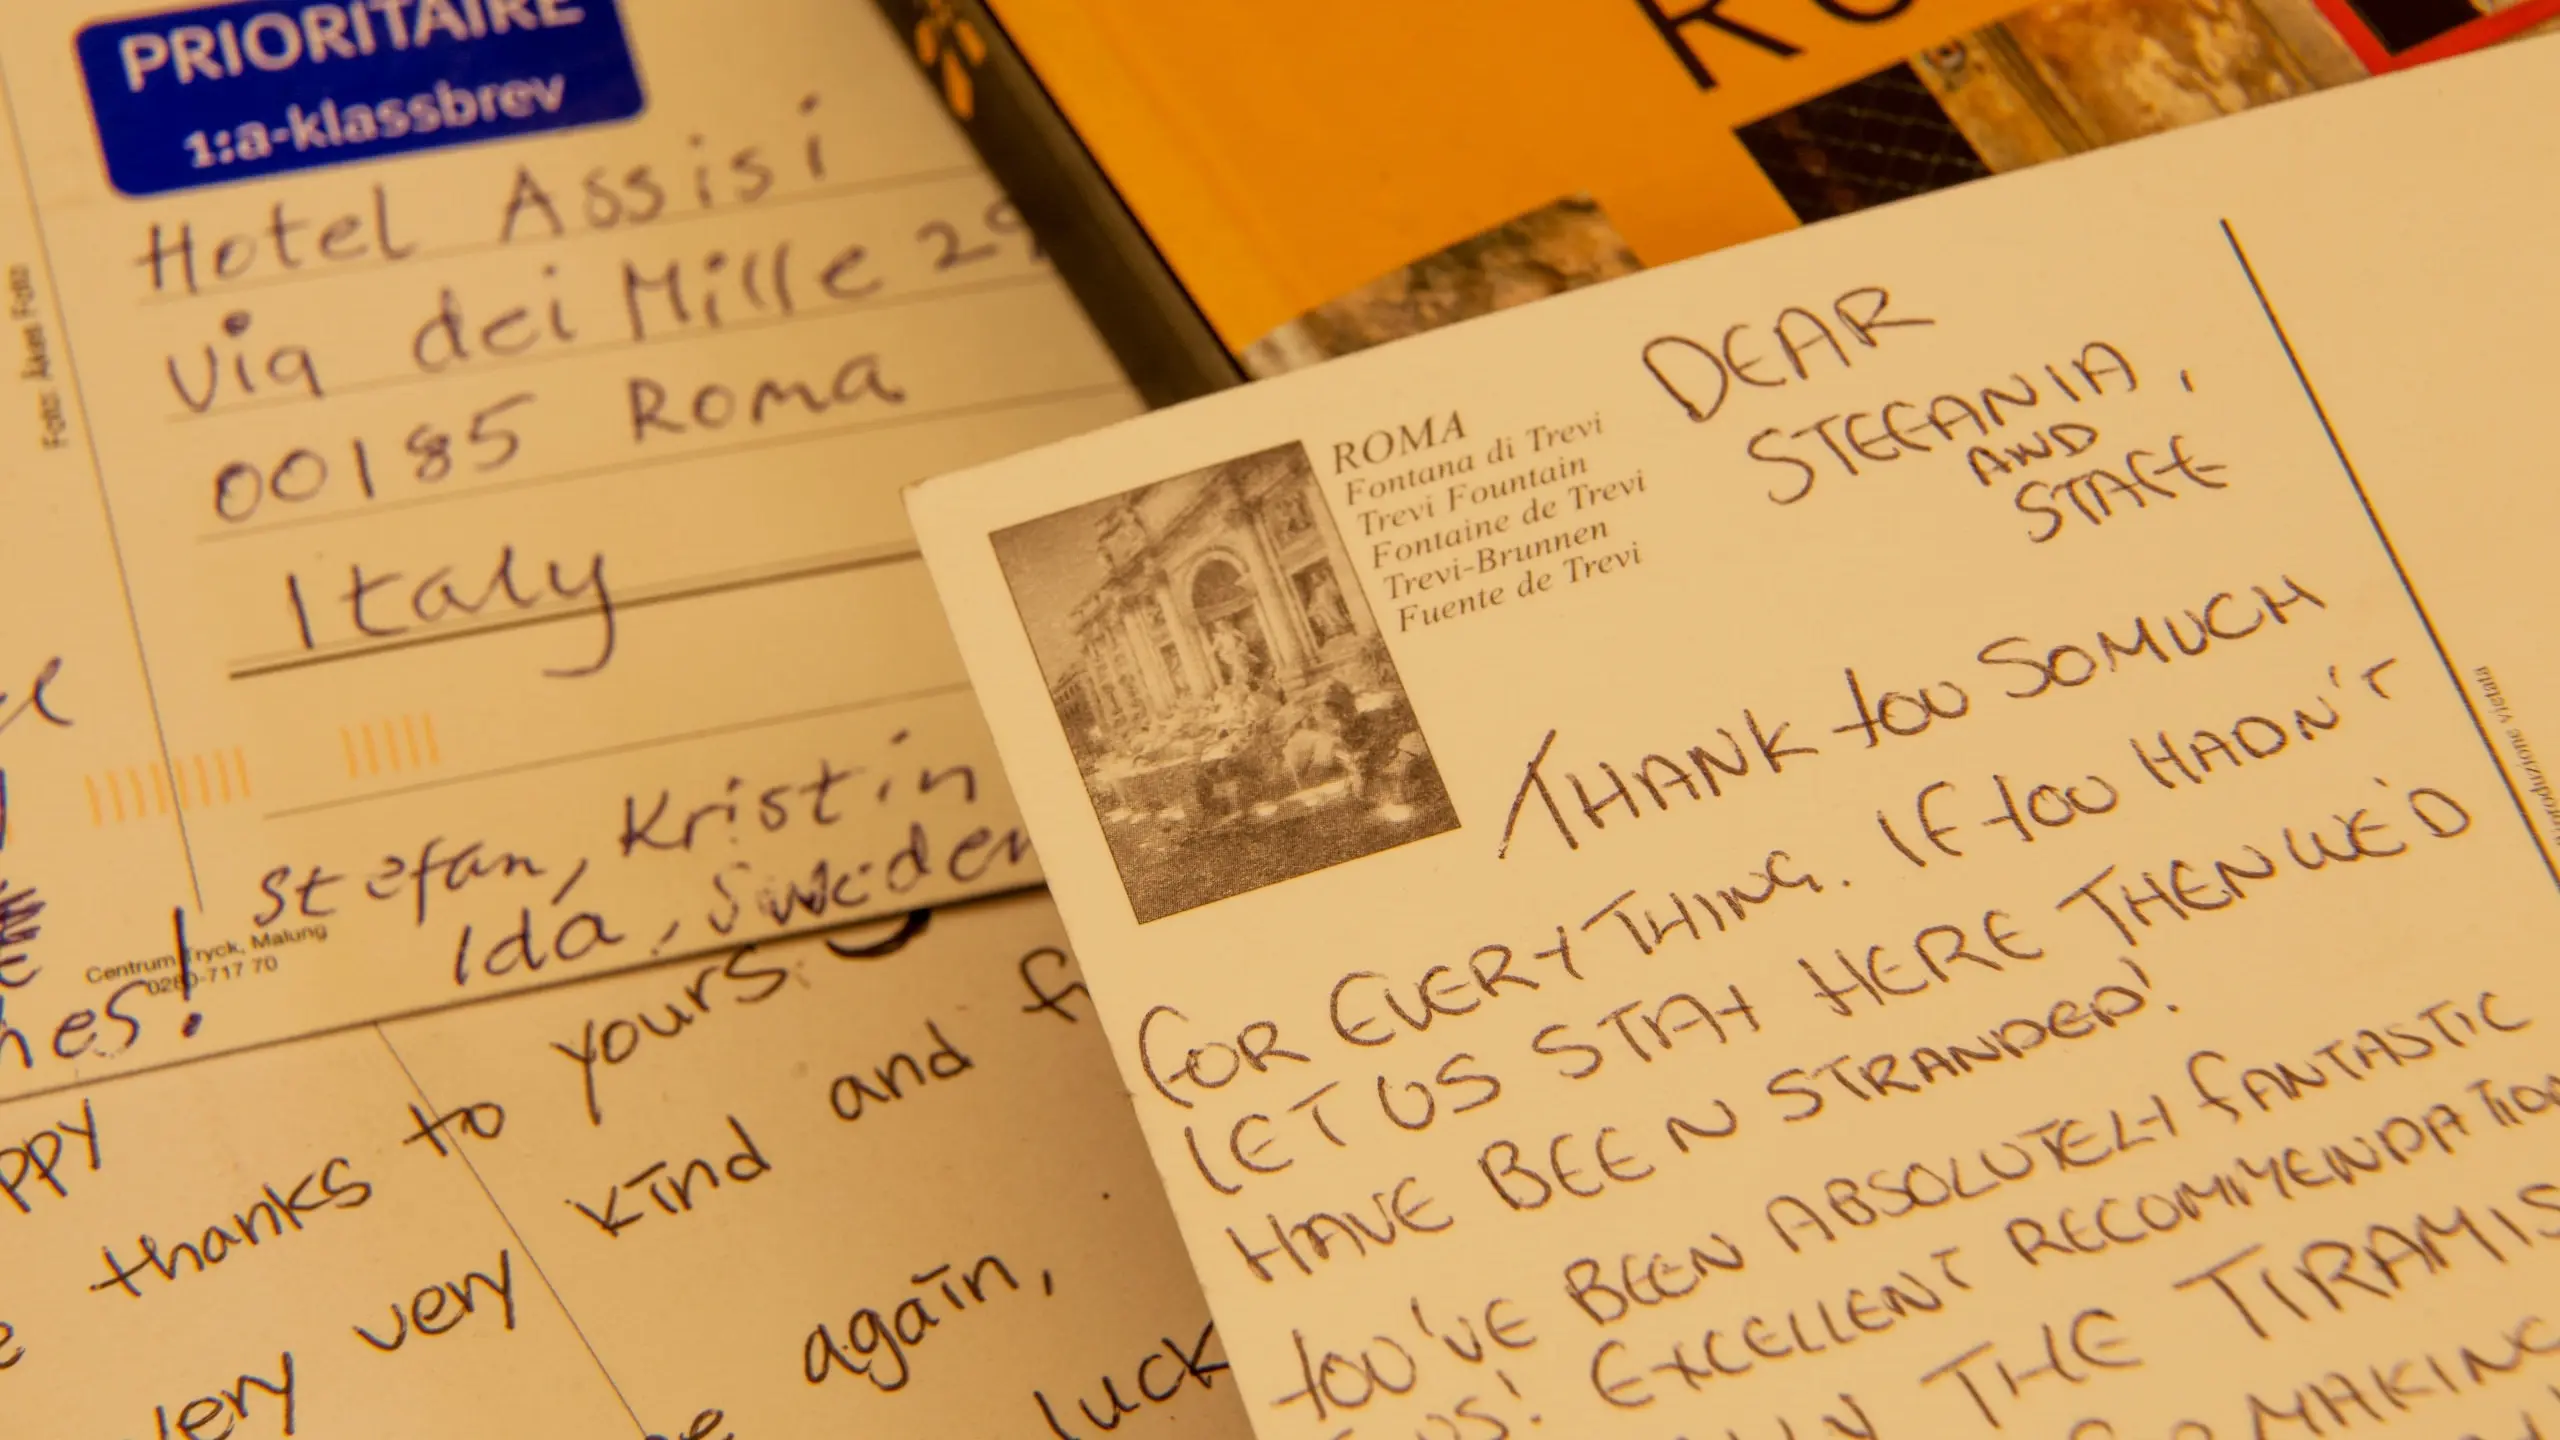 PRIORITAIRE
1:a-klassbrev
Hotel Assisi
Via dei Mille 29
00185 Roma
Italy
Stefan, Kristin
Ida, Sweden
Foto: Åkes Foto
Centrum Tryck, Malung
0280-717 70
thanks to yours
very kind and
very again,
luck
ROMA
Fontana di Trevi
Trevi Fountain
Fontaine de Trevi
Trevi-Brunnen
Fuente de Trevi
DEAR
STEFANIA,
AND
STAFF
THANK YOU SO MUCH
FOR EVERYTHING. IF YOU HADN'T
LET US STAY HERE THEN WE'D
HAVE BEEN STRANDED!
YOU'VE BEEN ABSOLUTELY FANTASTIC
US! EXCELLENT RECOMMENDATION
THE TIRAMIS
MAKING
vietata